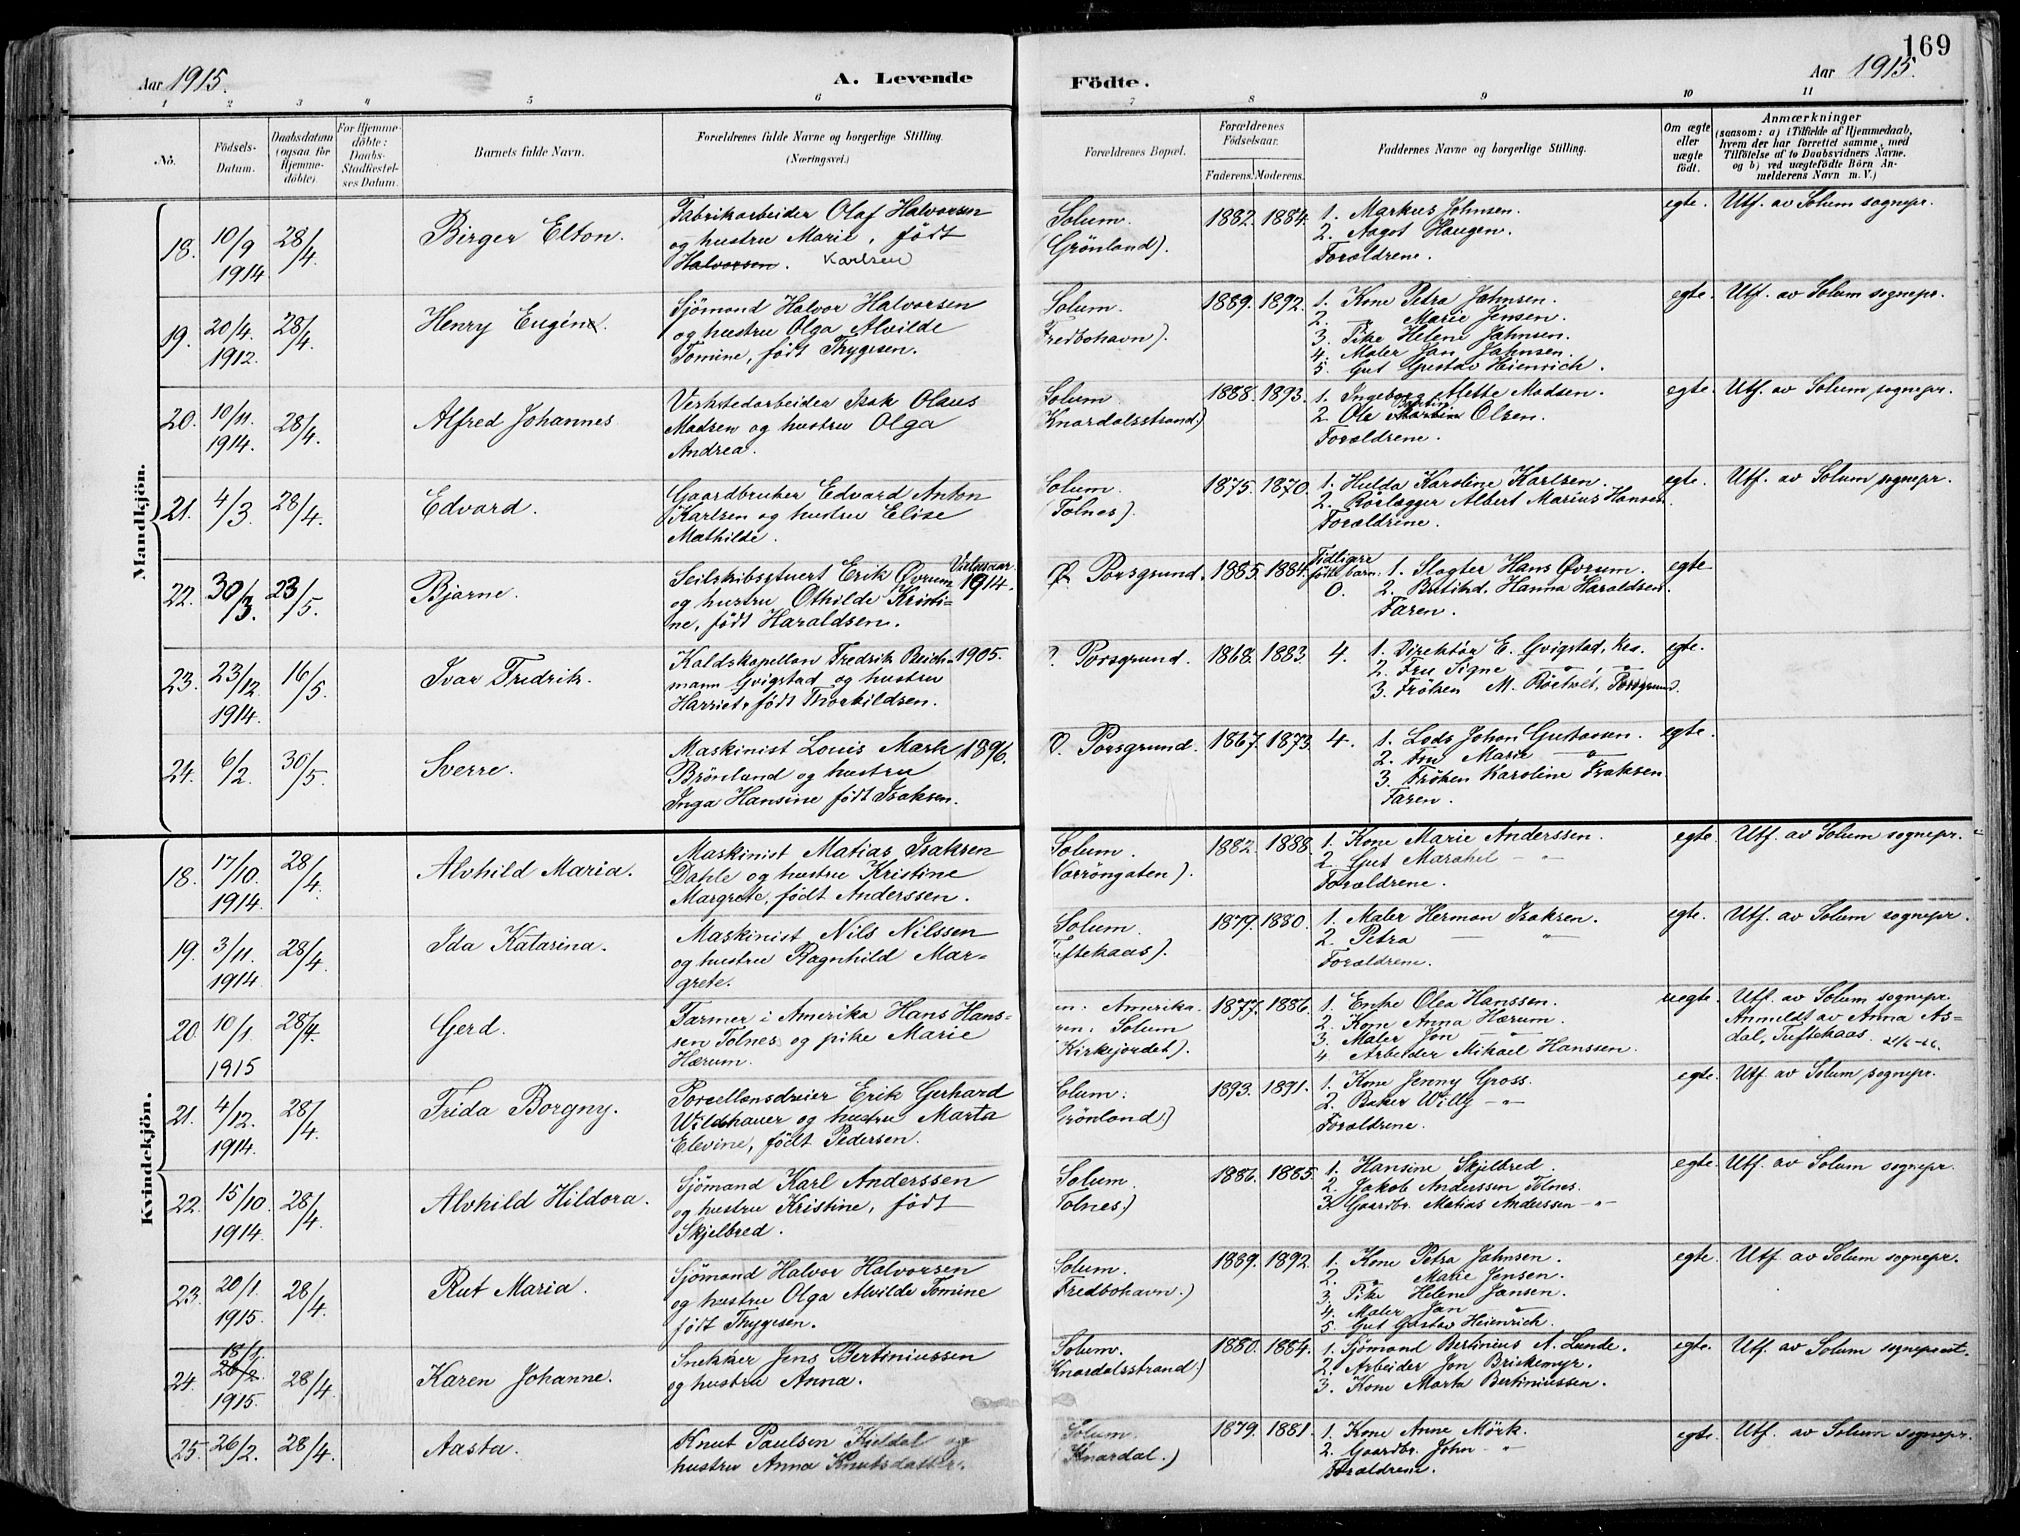 Aar 1915.
A. Levende
Födte.
Aar 1915.
169
1 2 3 4 5 6 7 8 9 10 11
No.
Födsels-Datum.
Daabsdatum (ogsaa for Hjemme-döbte).
For Hjemme-döbte: Daabs-Stadfæstel-ses Datum.
Barnets fulde Navn.
Forældrenes fulde Navne og borgerlige Stilling.
(Næringsvei.)
Forældrenes Bopæl.
Forældrenes Födselsaar.
Faderens. Moderens.
Faddernes Navne og borgerlige Stilling.
Om ægte eller uægte födt.
Anmærkninger
(saasom: a) i Tilfælde af Hjemmedaab,
hvem der har forrettet samme, med
Tilföielse af to Daabsvidners Navne.
og b) ved uægtefödte Börn An-
melderens Navn m. V.)
Mandkjön.
18. 10/9 1914 28/4. Birger Elton.
Fabrikarbeider Olaf Halvorsen
og hustru Marie, födt
Halvorsen. Karlsen
Solum.
Grönland).
1882. 1884.
1. Markus Johnsen.
2. Aagot Haugen.
Forældrene.
egte. Utf. av Solum sognepr.
19. 20/4. 1912. 28/4. Henry Eugéne.
Sjömand Halvor Halvorsen
og hustru Olga Alvilde
Tomine, födt Thygesen.
Solum.
Fredbohavn).
1889. 1892.
1. Kone Petra Jahnsen.
2. — Marie Jensen.
3. Pike Helene Jahnsen.
4. Maler Jan Jahnsen.
5. Gut Gustav Heinrich.
egte. Utf. av Solum sognepr.
20. 10/11. 1914. 28/4. Alfred Johannes.
Verkstedarbeider Isak Olaus
Madsen og hustru Olga
Andrea.
Solum
Knardalsstrand.)
1888. 1893.
1. Ingeborg Mette Madsen.
2. Ole Martin Olsen.
Forældrene.
egte. Utf. av Solum sognepr.
21. 4/3. 28/4. Edvard.
Gaardbruker Edvard Anton
Karlsen og hustru Elise
Mathilde.
Solum.
(Tolnes).
1875. 1870.
1. Hulda Karoline Karlsen.
2. Rörlægger Albert Marius Hansen.
Forældrene.
egte. Utf. av Solum sognepr.
22. 30/3. 23/5. Bjarne.
Seilskibsstuert Erik Øvrum
og hustru Othilde Kristi-
ne, födt Haraldsen.
Vielsesaar 1914.
Ø. Porsgrund.
1885. 1884.
Tidligere
födte barn:
0.
1. Slagter Hans Øvrum.
2. Butikd. Hanna Haraldsen.
Faren.
egte
23. 23/12. 1914. 16/5. Ivar Fredrik.
Kaldskapellan Fredrik Beich-
mann Gvigstad og hustru
Harriet, födt Thorkildsen.
1905.
Porsgrund.
1868. 1883. 4.
1. Direktör E. Gvigstad, Kra.
2. Fru Signe — " — "
3. Fröken M. Röstvet, Porsgrund.
egte.
24. 6/2. 30/5. Sverre.
Maskinist Louis Mark
Brönlund og hustru
Inga Hansine födt Isaksen.
1896.
Ø. Porsgrund.
1867. 1873. 4.
1. Lods Johan Gustavsen.
2. Fru Marie — " —
3. Fröken Karoline Isaksen.
Faren.
egte.
Kvindekjön.
18. 17/10. 1914. 28/4. Alvhild Maria.
Maskinist Matias Isaksen
Dahle og hustru Kristine
Margrete, födt Anderssen.
Solum.
Værröngaten).
1882. 1888.
1. Kone Marie Anderssen.
2. Gut — "
Forældrene.
egte. Utf. av Solum sognepr.
19. 3/11. 1914. 28/4. Ida Katarina.
Maskinist Nils Nilssen
og hustru Ragnhild Mar-
grete.
Solum.
Tuftekaas).
1879. 1880.
1. Maler Herman Isaksen.
2. Petra — "
Forældrene.
egte. Utf. av Solum sognepr.
20. 10/1. 1915 28/4. Gerd.
Farmer i Amerika Hans Hans-
sen Tolnes og pike Marie
Hærum.
en: Amerika.
ren: Solum
(Kirkejordet).
1877. 1886.
1. Enke Olea Hanssen.
2. Kone Anna Hærum.
3. Maler Jon — "
4. Arbeider Mikael Hanssen.
uegte. Utf. av Solum sognepr.
Anmeldt av Anna As-
dal, Tuftekaas.
21. 4/12. 1914. 28/4. Frida Borgny.
Porcellænsdreier Erik Gerhard
Wildhauer og hustru Marta
Elevine, födt Pedersen.
Solum:
Grönland.)
1893. 1891.
1. Kone Jenny Gross.
2. Baker Willy — "
Forældrene.
egte. Utf. av Solum sognepr.
22. 15/10. 1914. 28/4. Alvhild Hildora.
Sjömand Karl Anderssen
og hustru Kristine, födt
Skjelbred.
Solum.
Tolnes.)
1886. 1885.
1. Hansine Skjelbred.
2. Jakob Anderssen Tolnes.
3. Gaardbr. Matias Anderssen — "
egte. Utf. av Solum sognepr.
23. 20/1. 1915. 28/4. Rut Maria.
Sjömand Halvor Halvorsen
og hustru Olga Alvilde Tomine
födt Thygesen.
Solum.
Fredbohavn.)
1889. 1892
1. Kone Petra Jahnsen.
2. " Marie Jensen.
3. Pike Helene Jansen.
4. Maler Jan — "
5. Gut Gustav Heinrich.
egte. Utf. av Solum sognepr.
24. 18/2. 1915. 28/4. Karen Johanne.
Snekker Jens Bertiniussen
og hustru Anna.
Solum.
Knardalsstrand.)
1880. 1884.
1. Sjömand Bertinius A. Lunde.
2. Arbeider Jon Brickemyr.
3. Kone Marta Bertiniussen.
egte. Utf. av Solum sogneprest.
25. 26/2. 28/4. Aasta.
Knut Paulsen Kjeldal og
hustru Anna Knutsdatter.
Solum.
(Knardal.)
1879. 1881.
1. Kone Anne Mörk.
2. Gaardbr. John — "
Forældrene.
egte. Utf. av Solum sognepr.